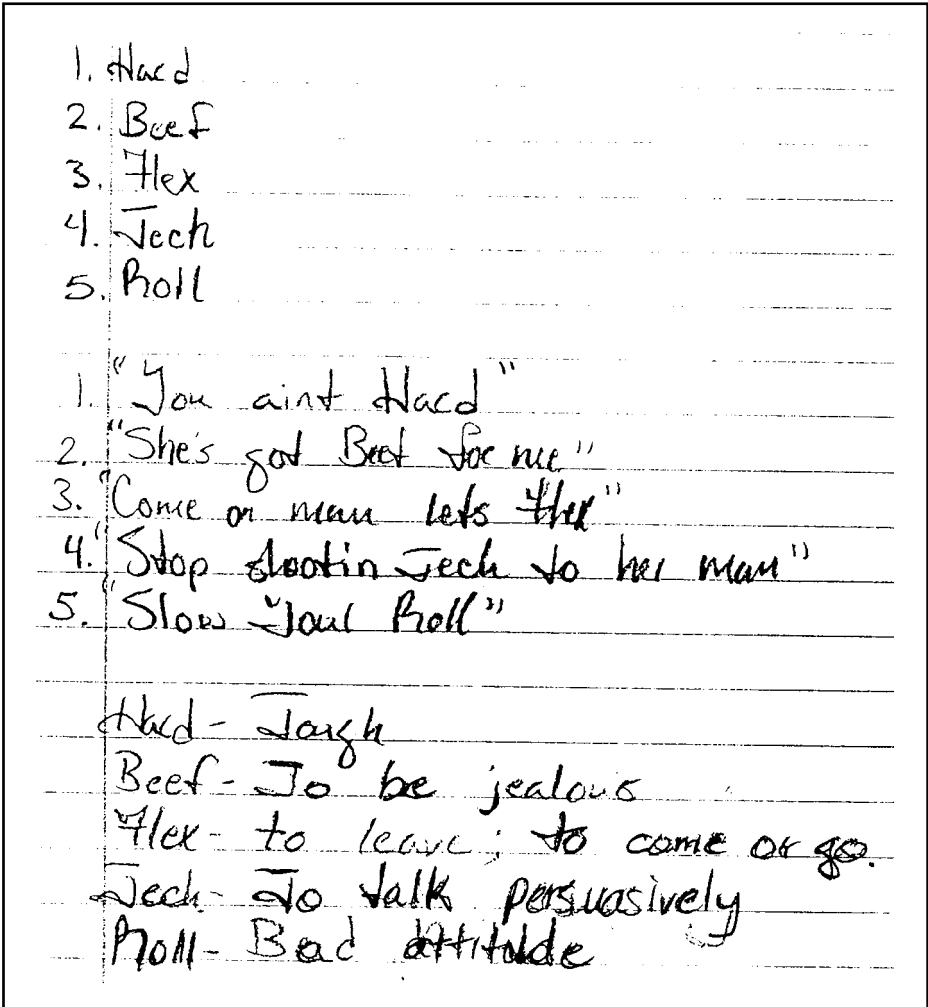 1. Hard
2. Beef
3. Flex
4. Tech
5. Roll
1. "You aint Hard"
2. "She's got Beef for me"
3. "Come on man lets flex"
4. "Stop shootin Tech to her man"
5. "Slow Your Roll"
Hard - Tough
Beef - To be jealous
Flex - to leave; to come or go.
Tech - To talk persuasively
Roll - Bad attitude